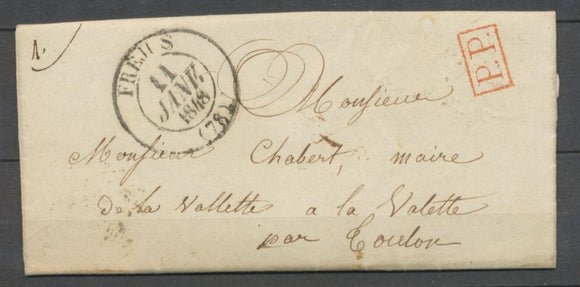 1.
FREJUS
11
JANV.
1848
(78)
P.P.
Monsieur
Monsieur Chabert, maire
de la Vallette a la Valette
par Toulon